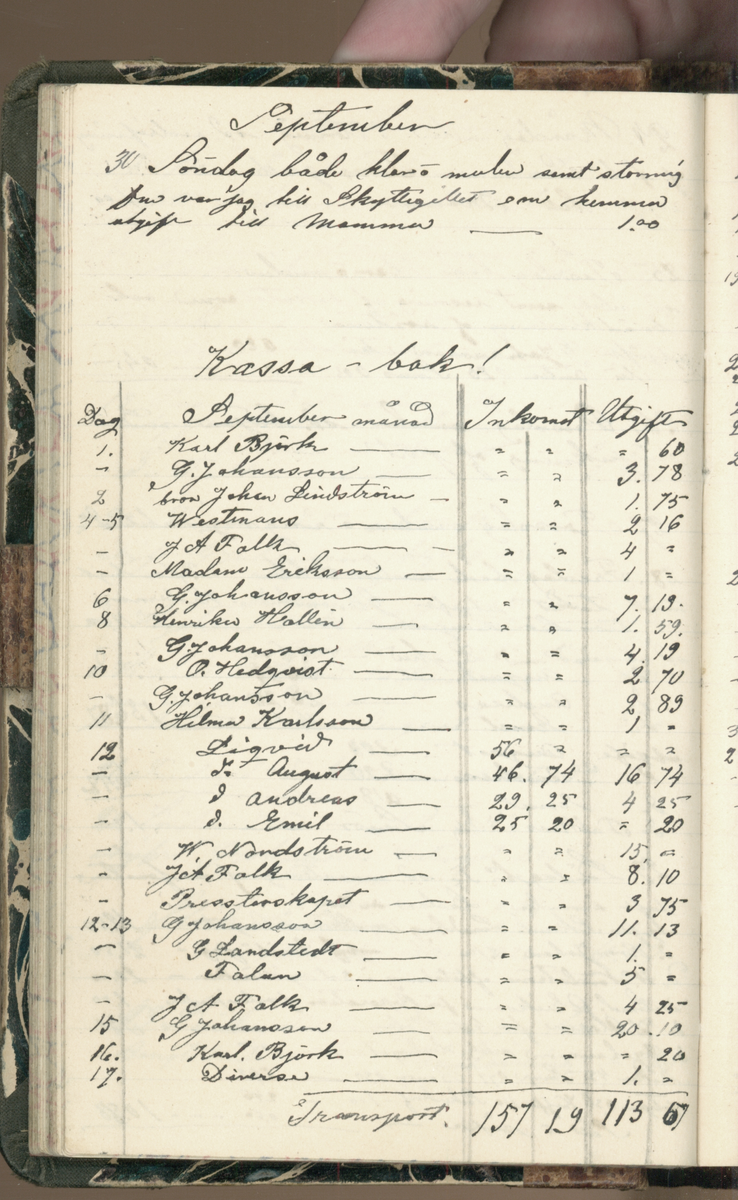 September
30 Söndag både klar o mulen samt stormig
Em var jag till Skyttegillet em hemma
utgift till Mamma — 1.00
Kassa - bok!
Dag September månad Inkomst Utgift
1. Karl Björk — " " " 60
- G. Johansson — " " 3. 78
2 bror Johan Lindström - " " 1. 75
4-5 Westmans — " " 2 16
- J A Falk — " " 4 "
- Madam Eriksson — " " 1 "
6 G. Johansson — " " 7. 19.
8 Henrika Hallin — " " 1. 59.
- G. Johansson — " " 4. 19
10 O. Hedqvist — " " 2 70
- G. Johansson — " " 2 89
11 Hilma Karlsson — " " 1 "
12 Liqvid — 56 " " "
- F. August — 46. 74 16 74
- d andreas — 29. 25 4 25
- d. Emil — 25 20 " 20
- W Nordström — " " 15 "
- J A Falk — " " 8. 10
- Presterskapet — " " 3 75
12-13 G Johansson — " " 11. 13
- G Landstedt — " " 1. "
- Falun — " " 5 "
- J A Falk — " " 4 25
15 G Johansson — " " 20. 10
16. Karl. Björk — " " " 20
17. Diverse — " " 1. "
Transport. 157 19 113 67